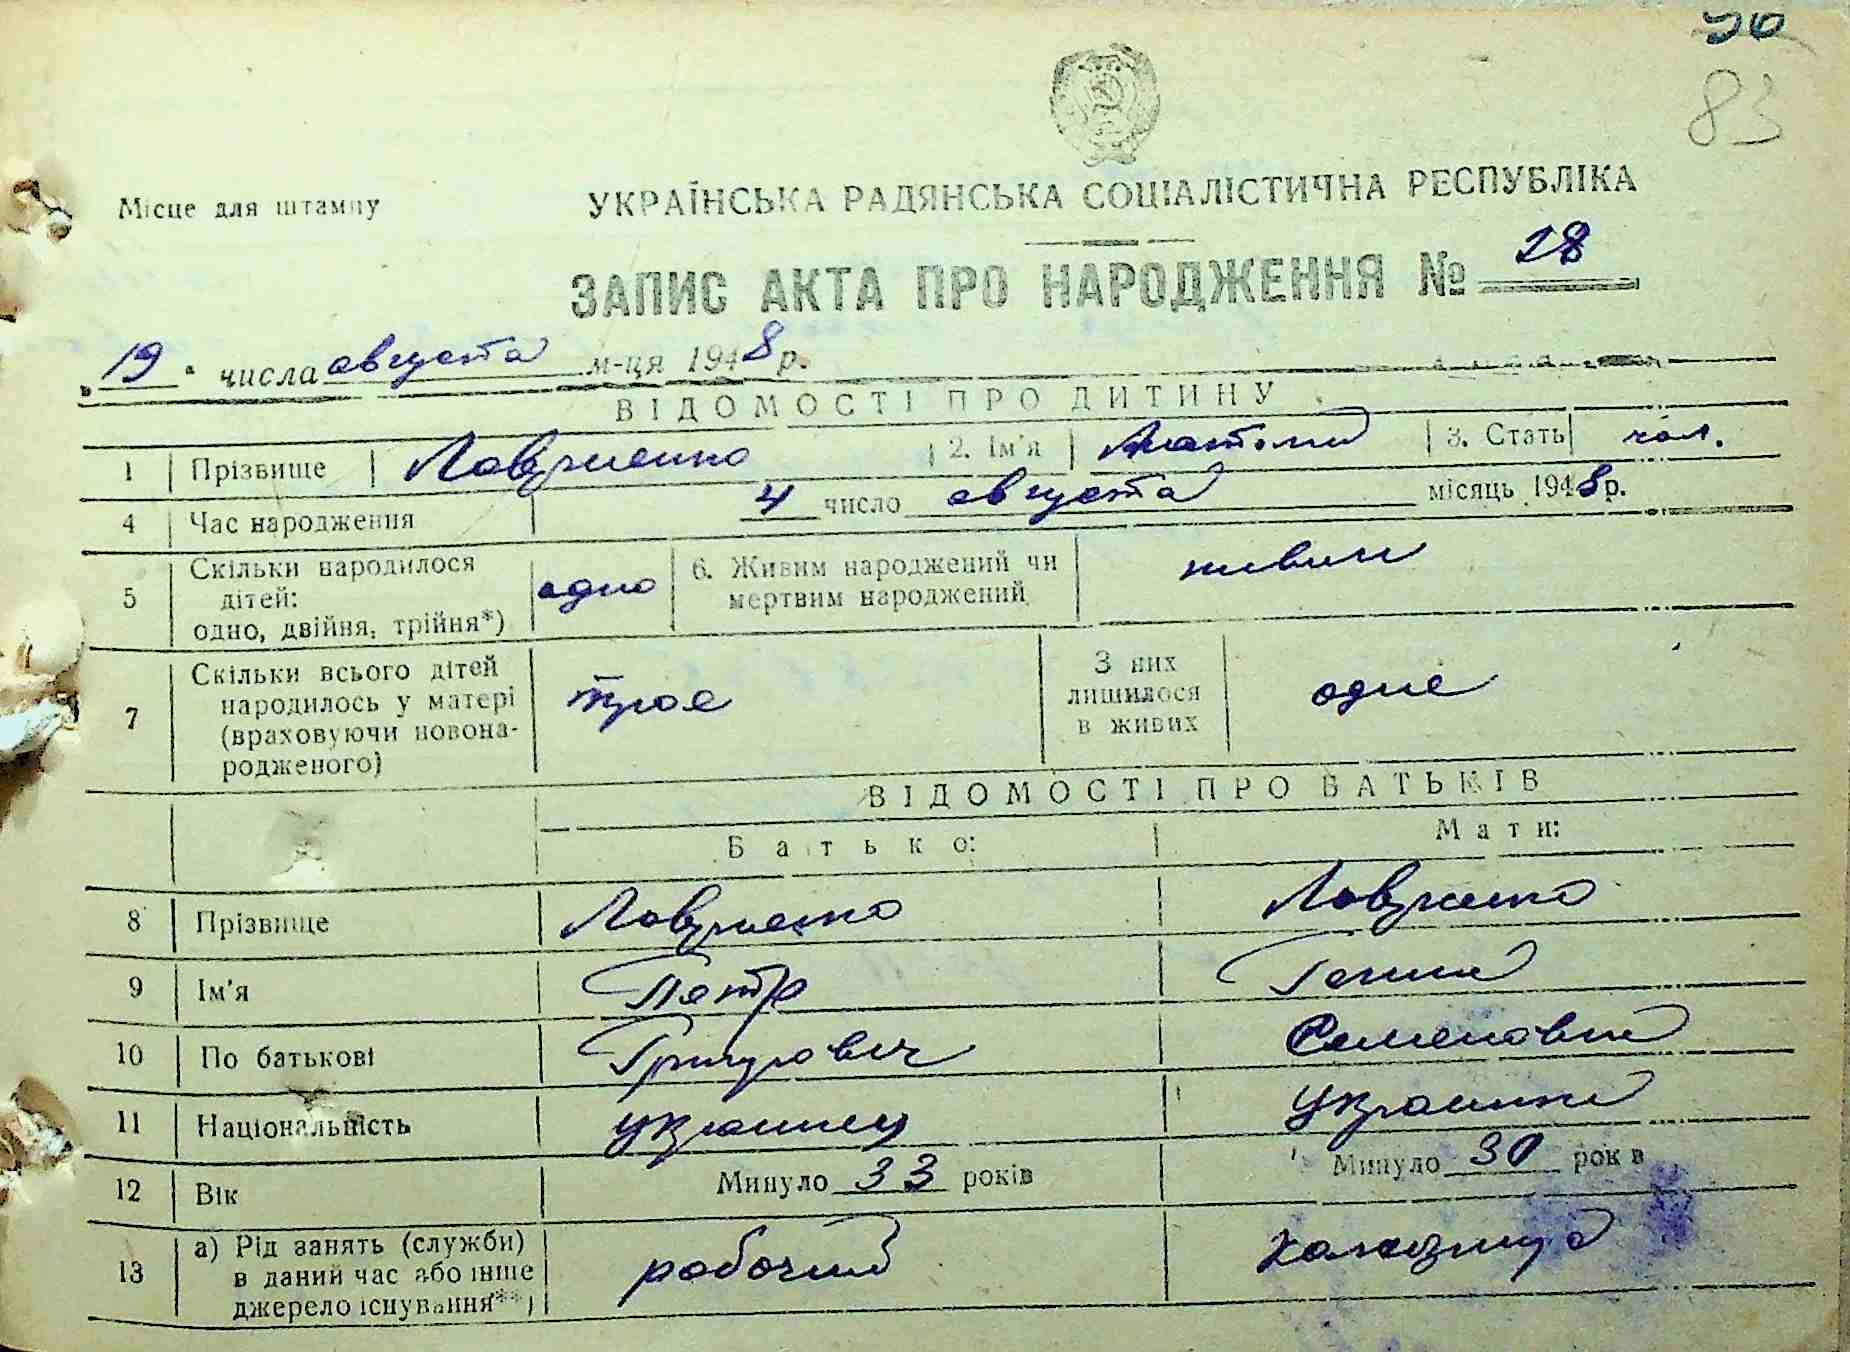 83
Місце для штампу
УКРАЇНСЬКА РАДЯНСЬКА СОЦІАЛІСТИЧНА РЕСПУБЛІКА
ЗАПИС АКТА ПРО НАРОДЖЕННЯ № 28
„19“ числа августа м-ця 1948 р.
ВІДОМОСТІ ПРО ДИТИНУ
1 Прізвище Лавриенко 2. Ім'я Анатолий 3. Стать чол.
4 Час народження 4 число августа місяць 1948 р.
5 Скільки народилося дітей: одно, двійня, трійня*) одно 6. Живим народжений чи мертвим народжений живим
7 Скільки всього дітей народилось у матері (враховуючи новонародженого) трое З них лишилося в живих одне
ВІДОМОСТІ ПРО БАТЬКІВ
Батько: Мати:
8 Прізвище Лавриенко Лавриенко
9 Ім'я Петр Ганна
10 По батькові Григорович Семеновна
11 Національність украинец украинка
12 Вік Минуло 33 років Минуло 30 років
13 а) Рід занять (служби) в даний час або інше джерело існування**) рабочий колхозница